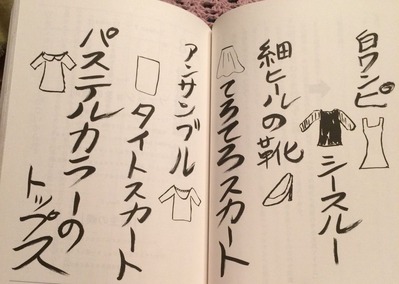 白ワンピ
シースルー
細ヒールの靴
てろてろスカート
アンサンブル
タイトスカート
パステルカラーの
トップス